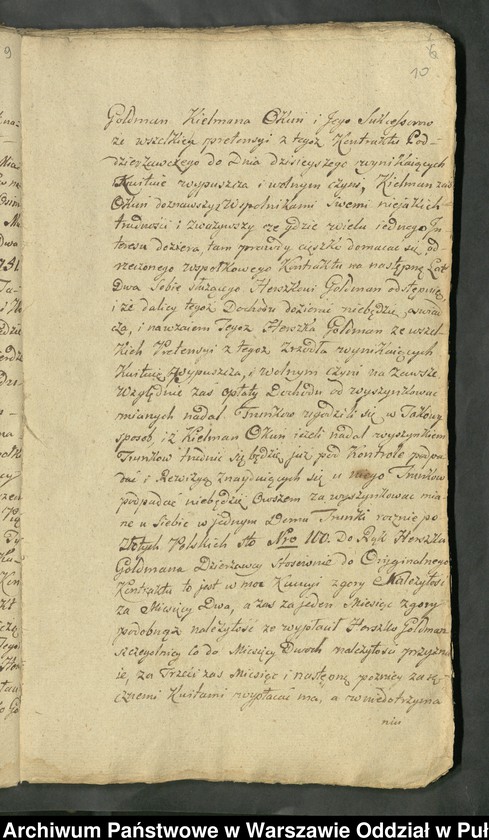 9
10
Goldman Kielmana Okuń i Jego Sukcessorow
ze wszelkiey pretensyi z tegoż Kontraktu Pod-
dzierżawczego do Dnia dzisieyszego wynikaiących
Kwituie wypuszcza i wolnym czyni, Kielman zaś
Okuń doznawszy z Wspolnikami swemi nieiakich
trudności i zważywszy że gdzie wielu iednego In-
teresu doziera tam prawdy cięszko domacać się od-
rzeczonego wspołkowego Kontraktu na następne Lat
Dwa Sobie służącego Herszkowi Goldman odstępuie,
i że daley tegoż Dochodu dozionie niebędzie, oswiad
cza, i nawzaiem Tegoż Herszka Goldman ze wszel-
kich Pretensyi z tegoż zrzodła wynikaiących
Kwituie, wypuszcza, i wolnym czyni na zawsze
Względnie zaś opłaty Dochodu od wyszynkować
mianych nadal Trunkow ugodzili się w Takowy
sposob, iż Kielman Okuń ieżeli nadal wyszynkiem
Trunkow trudnić się będzie, już pod Kontrole popa-
dać i Rewizyą znayduiących się u niego Trunkow
podpadać niebędzie Owszem za wyszynkować mia-
ne u siebie w jednym Domu Trunki rocznie po
Złotych Polskich sto Nro 100. do Rąk Herszka
Goldmana Dzierżawcy stosownie do Oryginalnego
Kontraktu to jest w moc Kaucyi zgory Należytość
za Miesięcy Dwa, a zaś za jeden Miesiąc zgory
podobnąż należytość że wypłacił Herszko Goldman
szczegolniey co do Miesięcy Dwoch należytości przyzna
ie, za Trzeci zaś Miesiąc i następne pozniey za rę-
cznemi Kwitami wypłacać ma, a w niedotrzyma
niu
Archiwum Państwowe w Warszawie Oddział w Puł